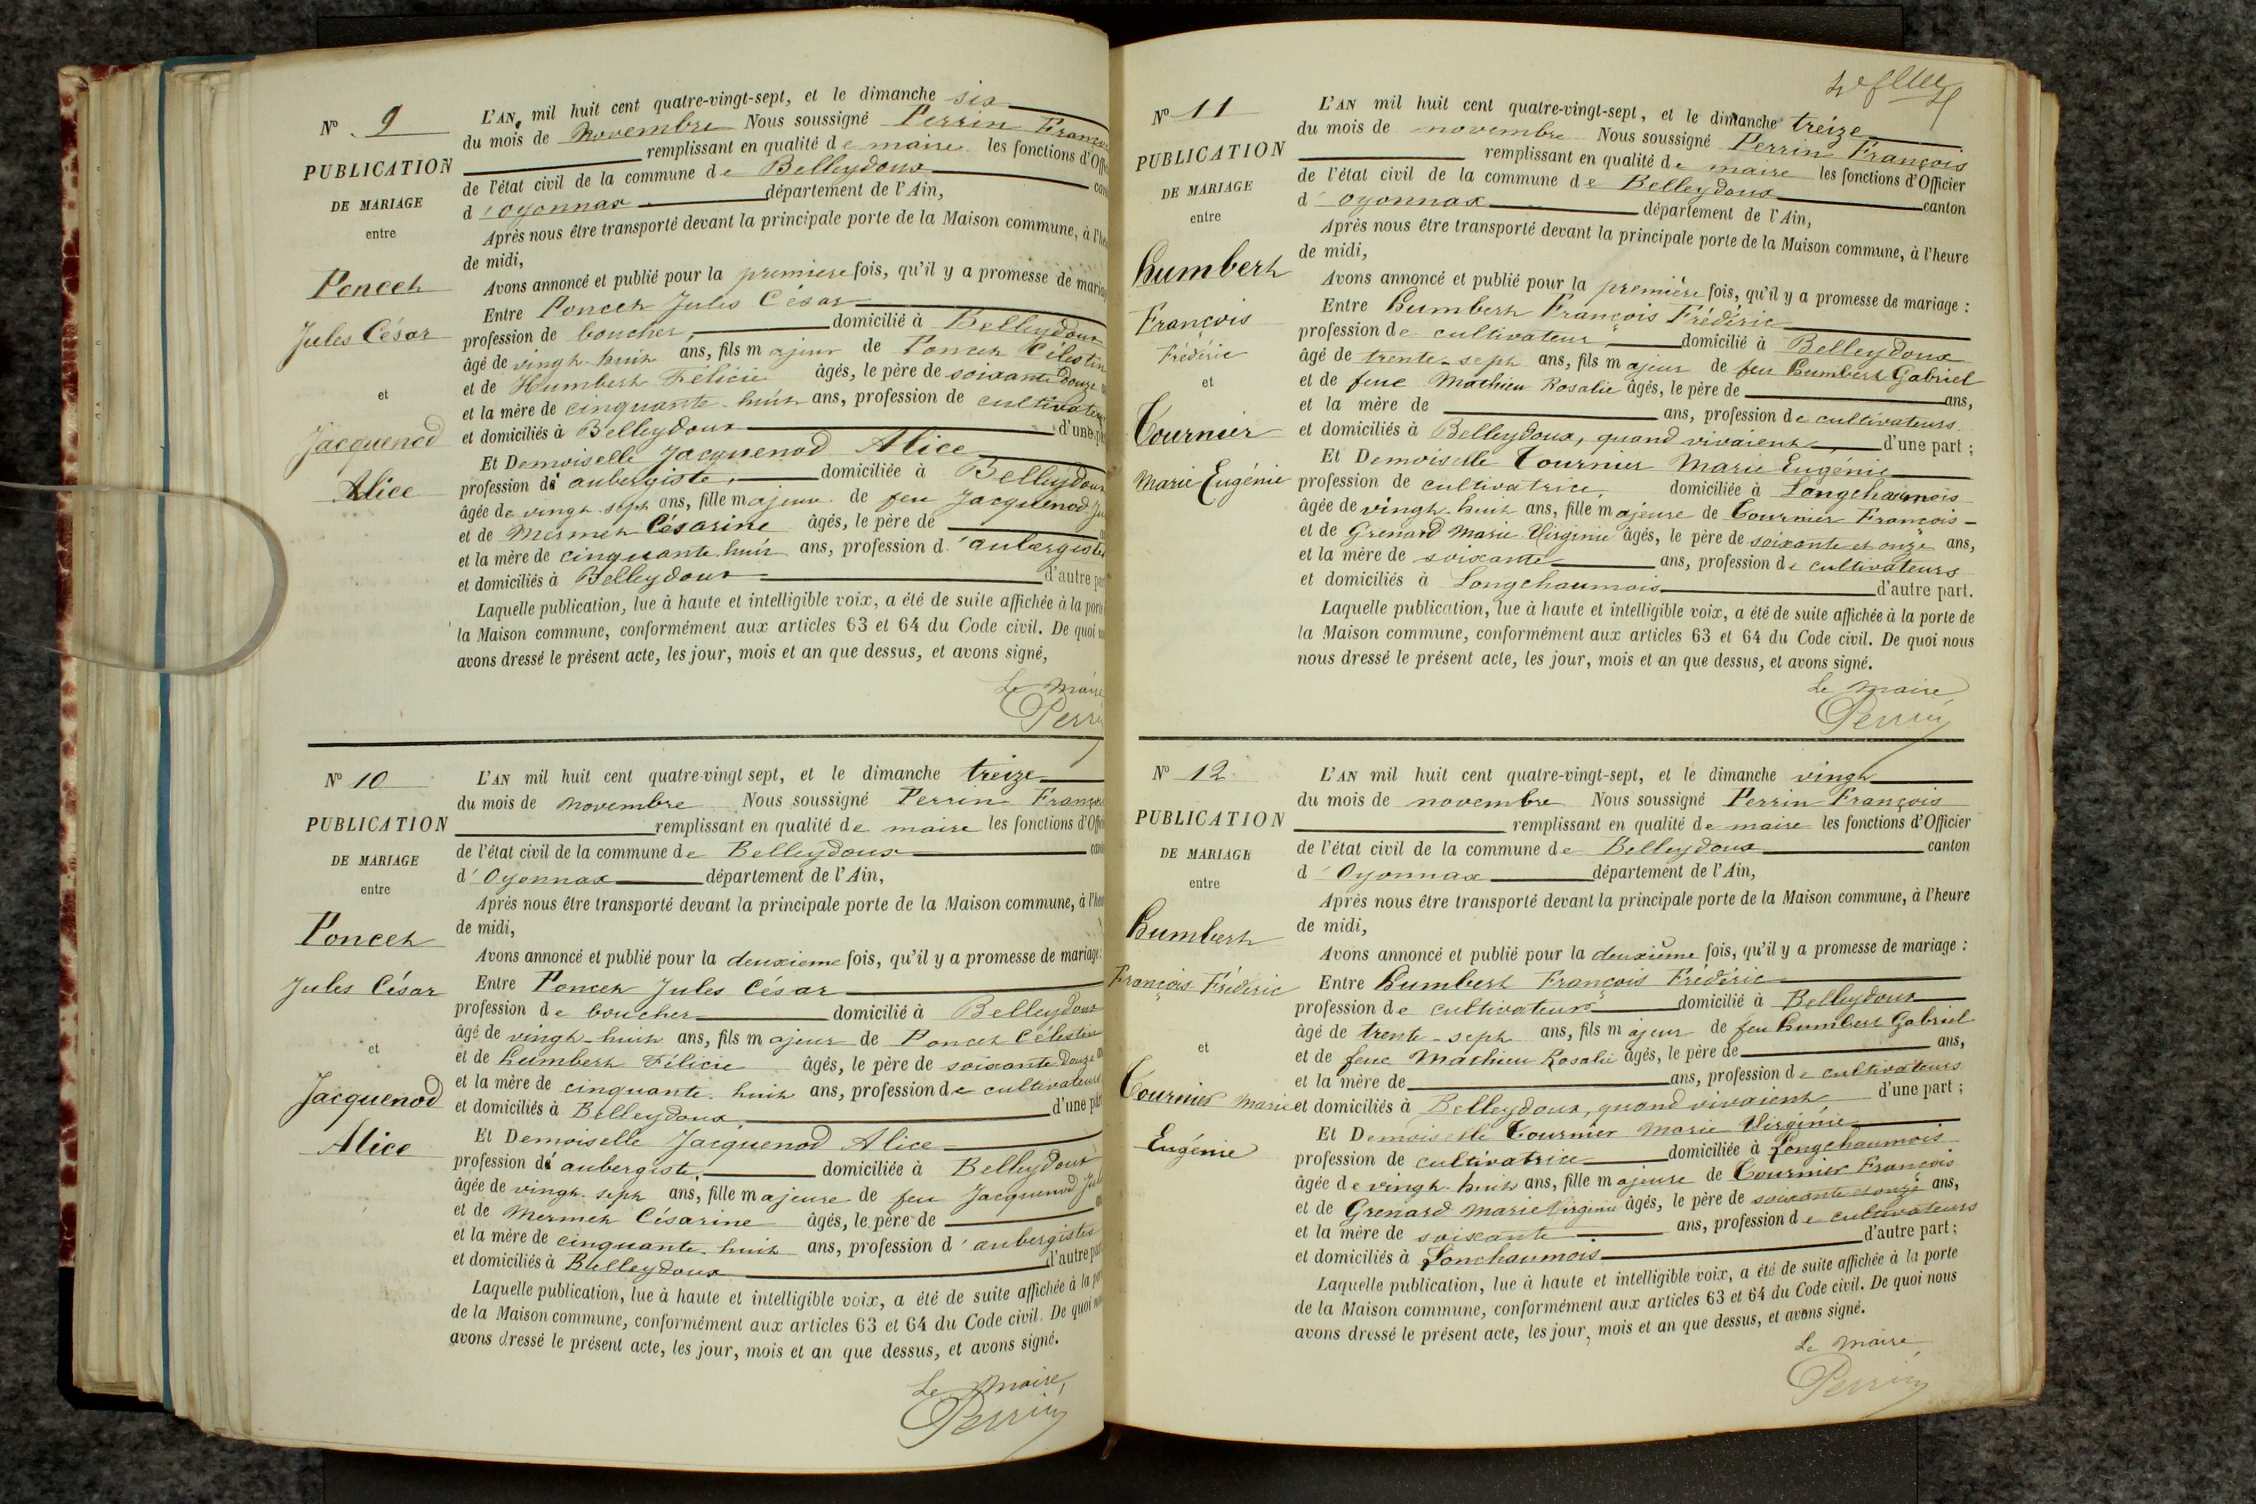 N° 9
PUBLICATION
DE MARIAGE
entre
Poncet
Jules César
et
Jacquenod
Alice
L'AN mil huit cent quatre-vingt-sept, et le dimanche six
du mois de Novembre Nous soussigné Perrin François
remplissant en qualité de maire les fonctions d'Offi
de l'état civil de la commune de Belleydoux can
d'Oyonnax département de l'Ain,
Après nous être transporté devant la principale porte de la Maison commune, à l'he
de midi,
Avons annoncé et publié pour la première fois, qu'il y a promesse de maria
Entre Poncet Jules César
profession de boucher, domicilié à Belleydoux
âgé de vingt-huit ans, fils majeur de Poncet Célestin
et de Humbert Félicie âgés, le père de soixante douze
et la mère de cinquante-huit ans, profession de cultivateurs
et domiciliés à Belleydoux d'une p
Et Demoiselle Jacquenod Alice
profession d'aubergiste, domiciliée à Belleydoux
âgée de vingt-sept ans, fille majeure de feu Jacquenod Ju
et de Mermet Césarine âgés, le père de
et la mère de cinquante-huit ans, profession d'aubergistes
et domiciliés à Belleydoux d'autre par
Laquelle publication, lue à haute et intelligible voix, a été de suite affichée à la porte
la Maison commune, conformément aux articles 63 et 64 du Code civil. De quoi
avons dressé le présent acte, les jour, mois et an que dessus, et avons signé,
Le Maire
Perri
N° 10
PUBLICATION
DE MARIAGE
entre
Poncet
Jules César
et
Jacquenod
Alice
L'AN mil huit cent quatre-vingt sept, et le dimanche treize
du mois de Novembre Nous soussigné Perrin Franço
remplissant en qualité de maire les fonctions d'Offi
de l'état civil de la commune de Belleydoux can
d'Oyonnax département de l'Ain,
Après nous être transporté devant la principale porte de la Maison commune, à l'heu
de midi,
Avons annoncé et publié pour la deuxieme fois, qu'il y a promesse de mariage:
Entre Poncet Jules César
profession de boucher domicilié à Belleydoux
âgé de vingt-huit ans, fils majeur de Poncet Célestin
et de humbert Félicie âgés, le père de soixante douze
et la mère de cinquante-huit ans, profession de cultivateurs
et domiciliés à Belleydoux d'une par
Et Demoiselle Jacquenod Alice
profession d'aubergiste, domiciliée à Belleydoux
âgée de vingt-sept ans, fille majeure de feu Jacquenod Jul
et de Mermet Césarine âgés, le père de
et la mère de cinquante-huit ans, profession d'aubergistes
et domiciliés à Belleydoux d'autre par
Laquelle publication, lue à haute et intelligible voix, a été de suite affichée à la po
de la Maison commune, conformément aux articles 63 et 64 du Code civil. De quoi
avons dressé le présent acte, les jour, mois et an que dessus, et avons signé.
Le Maire,
Perrin
N° 11
PUBLICATION
DE MARIAGE
entre
humbert
François
Frédéric
et
Tournier
Marie Eugénie
L'AN mil huit cent quatre-vingt-sept, et le dimanche treize
du mois de novembre Nous soussigné Perrin François
remplissant en qualité de maire les fonctions d'Officier
de l'état civil de la commune de Belleydoux canton
d'Oyonnax département de l'Ain,
Après nous être transporté devant la principale porte de la Maison commune, à l'heure
de midi,
Avons annoncé et publié pour la première fois, qu'il y a promesse de mariage :
Entre humbert François Frédéric
profession de cultivateur, domicilié à Belleydoux
âgé de trente-sept ans, fils majeur de feu humbert Gabriel
et de feue Mathieu Rosalie âgés, le père de ans,
et la mère de ans, profession de cultivateurs
et domiciliés à Belleydoux, quand vivaient d'une part ;
Et Demoiselle Tournier Marie Eugénie
profession de cultivatrice, domiciliée à Longchaumois
âgée de vingt-huit ans, fille majeure de Tournier François
et de Grenard Marie Virginie âgés, le père de soixante et onze ans,
et la mère de soixante ans, profession de cultivateurs
et domiciliés à Longchaumois d'autre part.
Laquelle publication, lue à haute et intelligible voix, a été de suite affichée à la porte de
la Maison commune, conformément aux articles 63 et 64 du Code civil. De quoi nous
nous dressé le présent acte, les jour, mois et an que dessus, et avons signé.
Le Maire
Perrin
N° 12
PUBLICATION
DE MARIAGE
entre
humbert
François Frédéric
et
Tournier Marie
Eugénie
L'AN mil huit cent quatre-vingt-sept, et le dimanche vingt
du mois de novembre Nous soussigné Perrin François
remplissant en qualité de maire les fonctions d'Officier
de l'état civil de la commune de Belleydoux canton
d'Oyonnax département de l'Ain,
Après nous être transporté devant la principale porte de la Maison commune, à l'heure
de midi,
Avons annoncé et publié pour la deuxième fois, qu'il y a promesse de mariage :
Entre humbert François Frédéric
profession de cultivateur domicilié à Belleydoux
âgé de trente-sept ans, fils majeur de feu humbert Gabriel
et de feue Mathieu Rosalie âgés, le père de ans,
et la mère de ans, profession de cultivateurs
et domiciliés à Belleydoux, quand vivaient d'une part ;
Et Demoiselle Tournier Marie Virginie
profession de cultivatrice domiciliée à Longchaumois
âgée de vingt-huit ans, fille majeure de Tournier François
et de Grenard Marie Virginie âgés, le père de soixante et onze ans,
et la mère de soixante ans, profession de cultivateurs
et domiciliés à Lonchaumois d'autre part ;
Laquelle publication, lue à haute et intelligible voix, a été de suite affichée à la porte
de la Maison commune, conformément aux articles 63 et 64 du Code civil. De quoi nous
avons dressé le présent acte, les jour, mois et an que dessus, et avons signé.
Le Maire,
Perrin